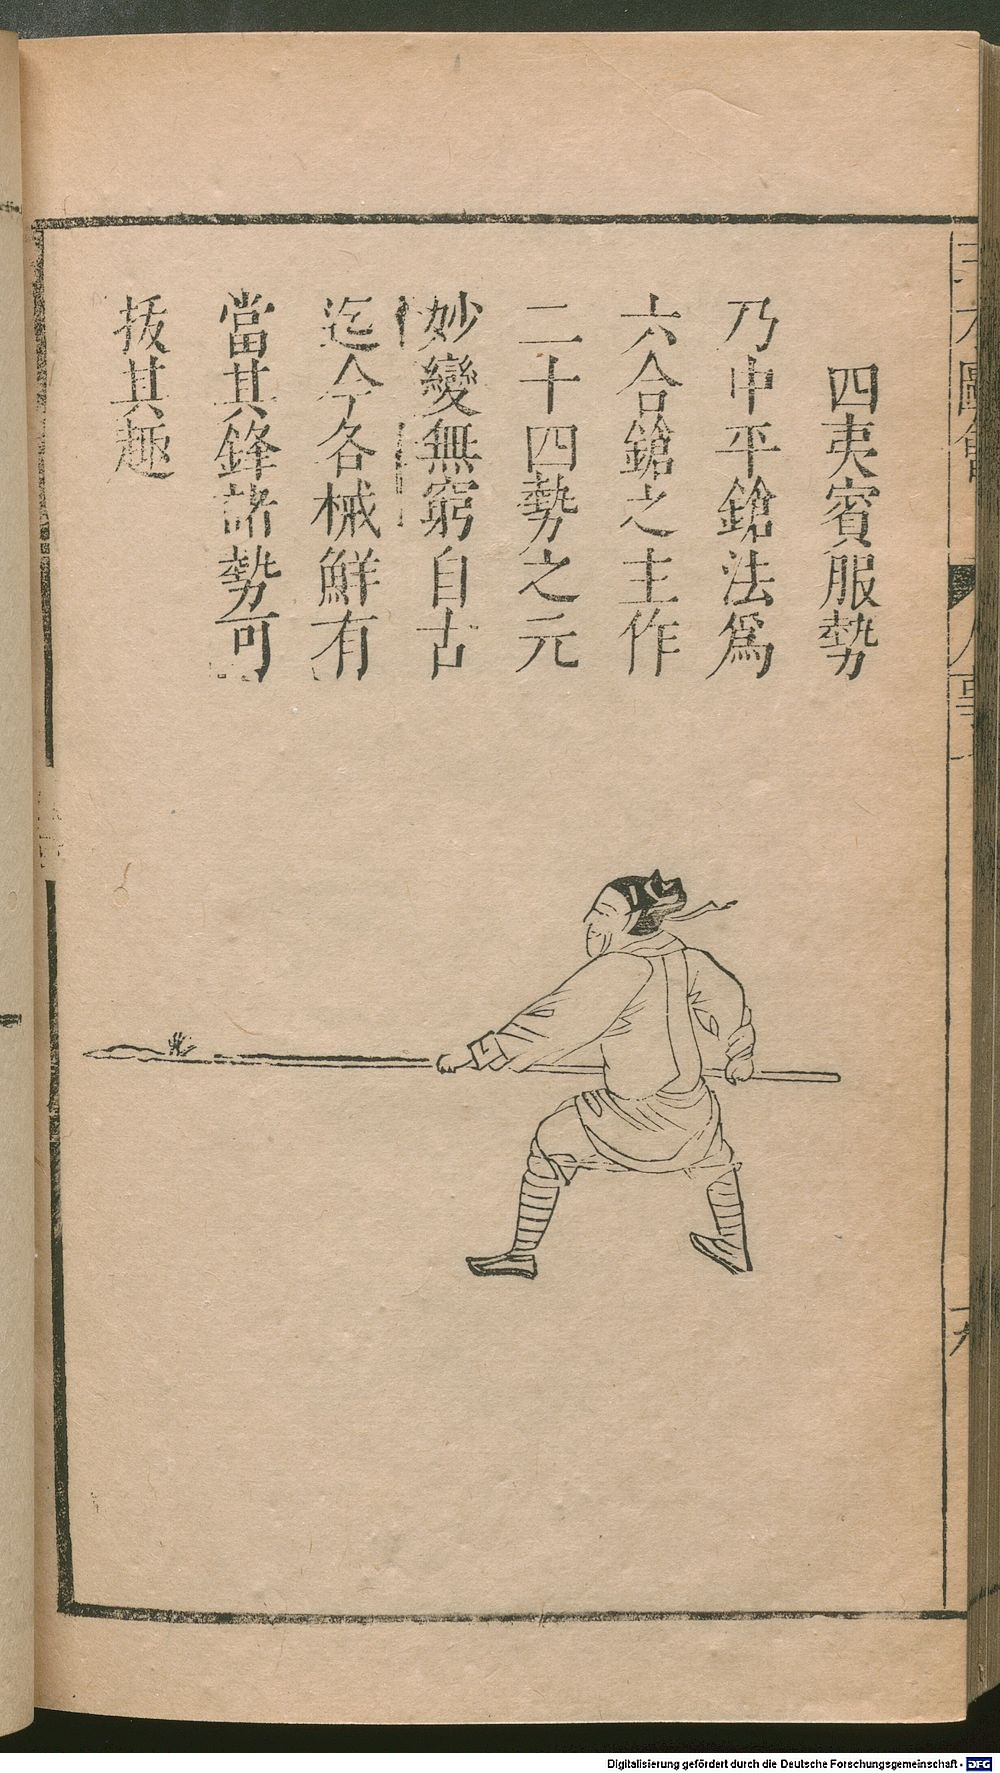 四夷賓服勢
乃中平鎗法爲
六合鎗之主作
二十四勢之元
妙變無窮自古
迄今各械鮮有
當其鋒諸勢可
拔其趣
Digitalisierung gefördert durch die Deutsche Forschungsgemeinschaft - DFG